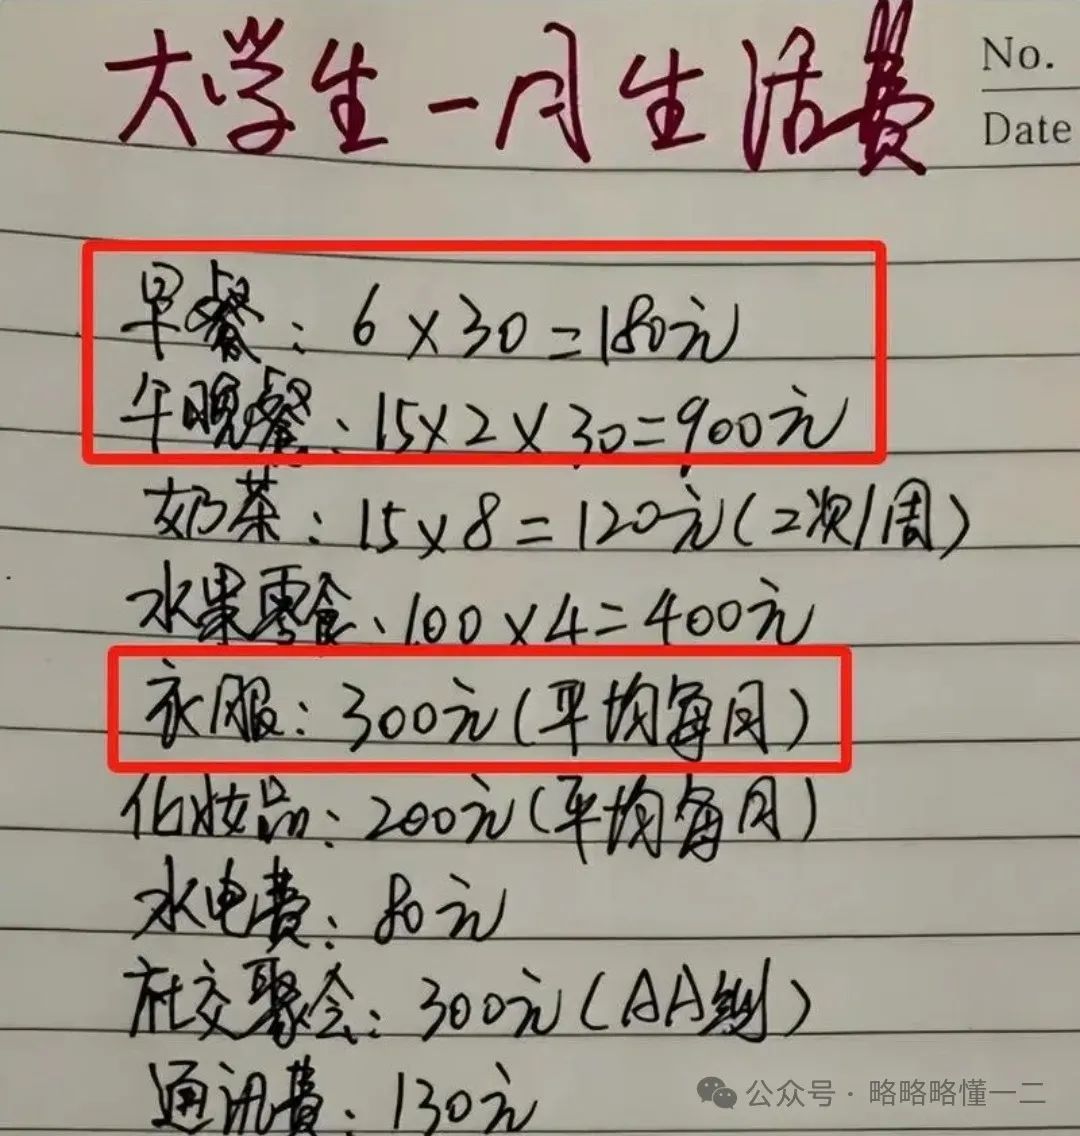 大学生一月生活费
No.
Date
早餐：6×30=180元
午晚餐：15×2×30=900元
奶茶：15×8=120元(2次/周)
水果零食：100×4=400元
衣服：300元(平均每月)
化妆品：200元(平均每月)
水电费：80元
社交聚会：300元(AA制)
通讯费：130元
公众号·略略略懂一二